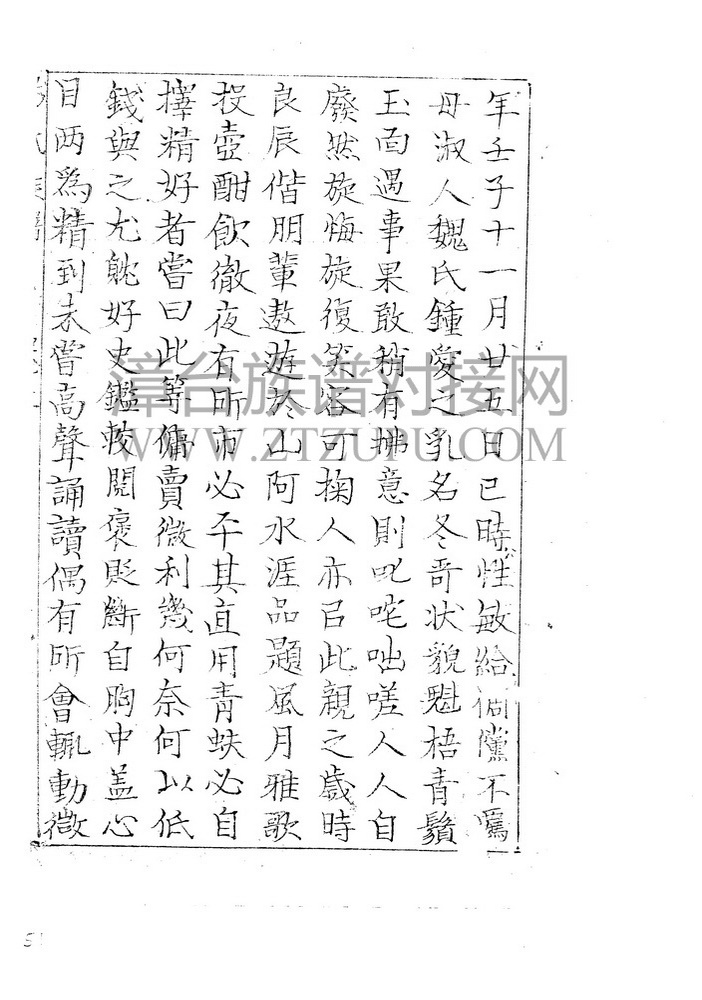 年壬子十一月廿五日巳時性敏給倜儻不羈
母淑人魏氏鍾愛之乳名冬哥狀貌魁梧青鬚
玉面遇事果敢稍有拂意則叱咤咄嗟人人自
廢然旋悔旋復笑容可掬人亦㠯此親之歲時
良辰偕朋輩遨遊於山阿水涯品題風月雅歌
投壺酣飲徹夜有所市必平其直用青蚨必自
擇精好者嘗曰此等傭賣微利幾何奈何以低
錢與之尤躭好史鑑較閱褒貶斷自胸中盖心
目两為精到未嘗高聲誦讀偶有所會輒動微
漳台族谱对接网
WWW.ZTZUPU.COM